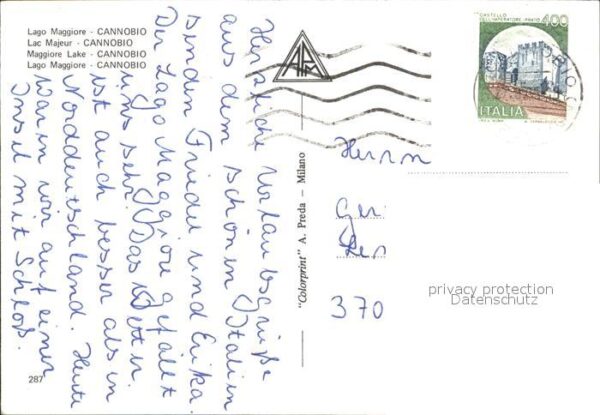 Lago Maggiore - CANNOBIO
Lac Majeur - CANNOBIO
Maggiore Lake - CANNOBIO
Lago Maggiore - CANNOBIO
Herzliche Urlaubsgrüße
aus dem schönen Italien
senden Friedel und Erika.
Der Lago Maggiore gefällt
uns sehr. Das Wetter
ist auch besser als in
Norddeutschland. Heute
waren wir auf einer
Insel mit Schloß.
287
"Colorprint" A. Preda - Milano
CASTELLO
DELL'IMPERATORE - PRATO
400
ITALIA
Herrn
Ger
370
privacy protection
Datenschutz